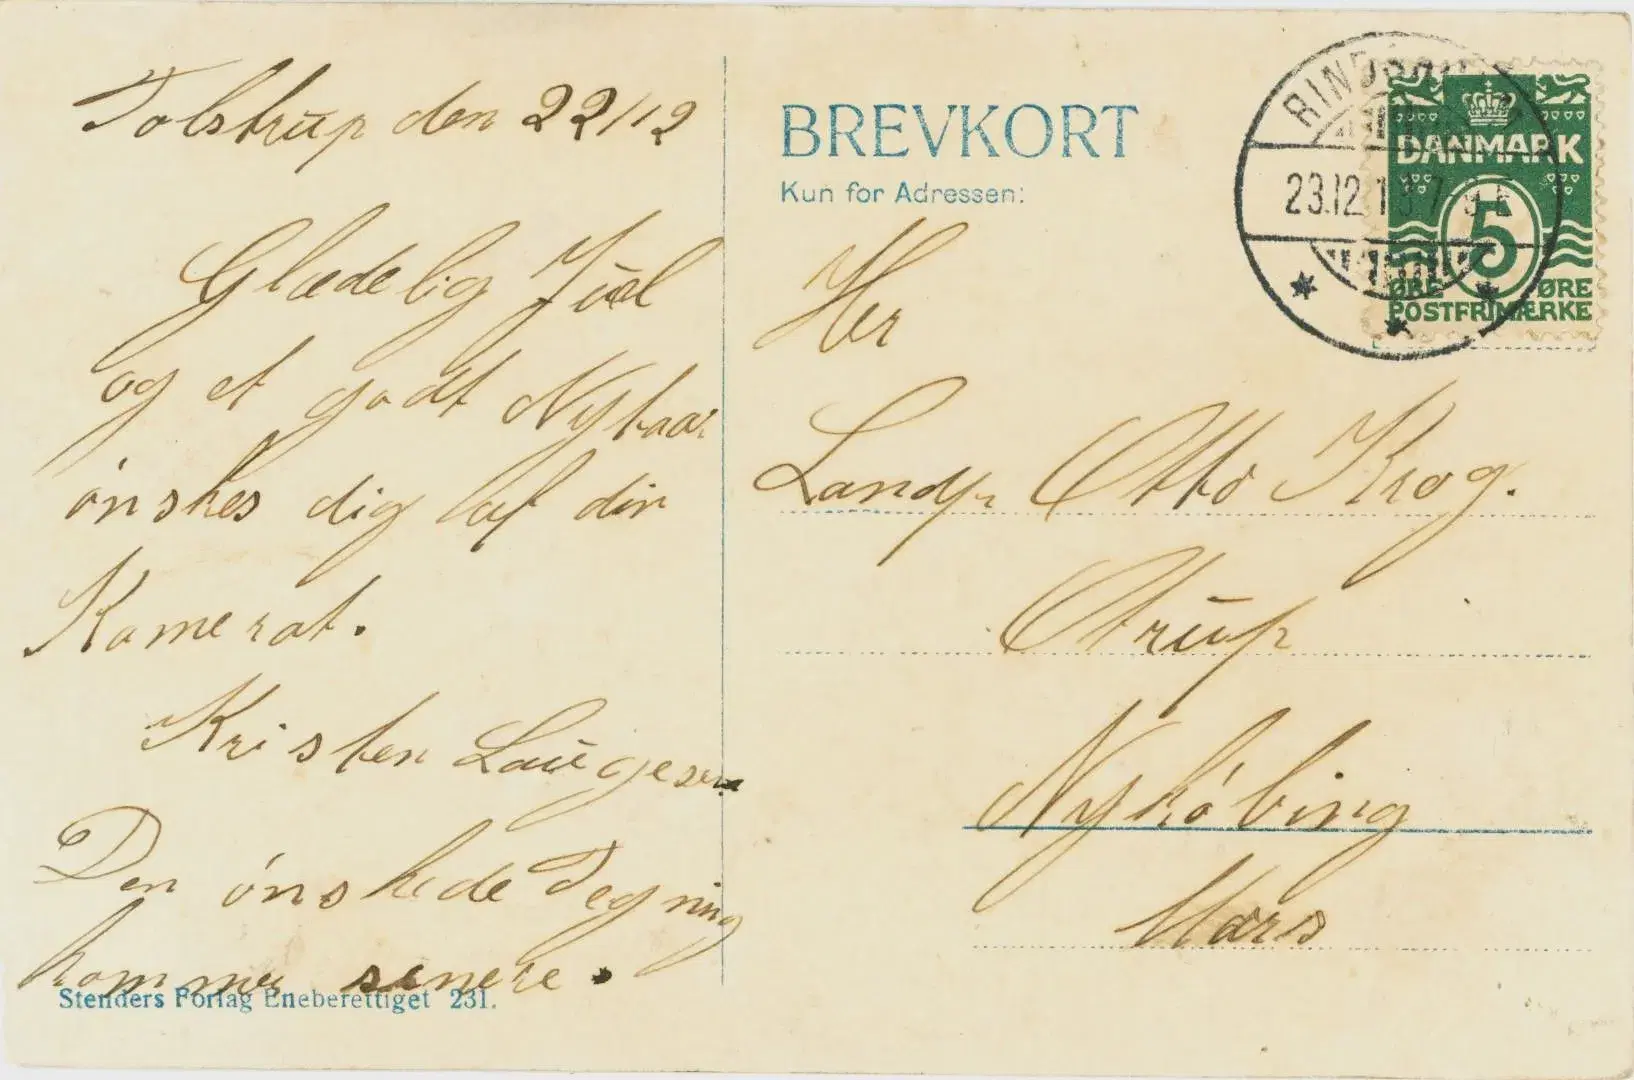 Tolstrup den 22/12
Glædelig Jul
og et godt Nytaar
ønskes dig af din
Kamerat.
Kristen Laugesen
Den ønskede Tegning
kommer senere.
Stenders Forlag Eneberettiget 231.
BREVKORT
Kun for Adressen:
RINDS
23.12.13
DANMARK
5
ØRE ØRE
POSTFRIMÆRKE
Her
Landp. Otto Krog.
Otrup
Nykøbing
Mors